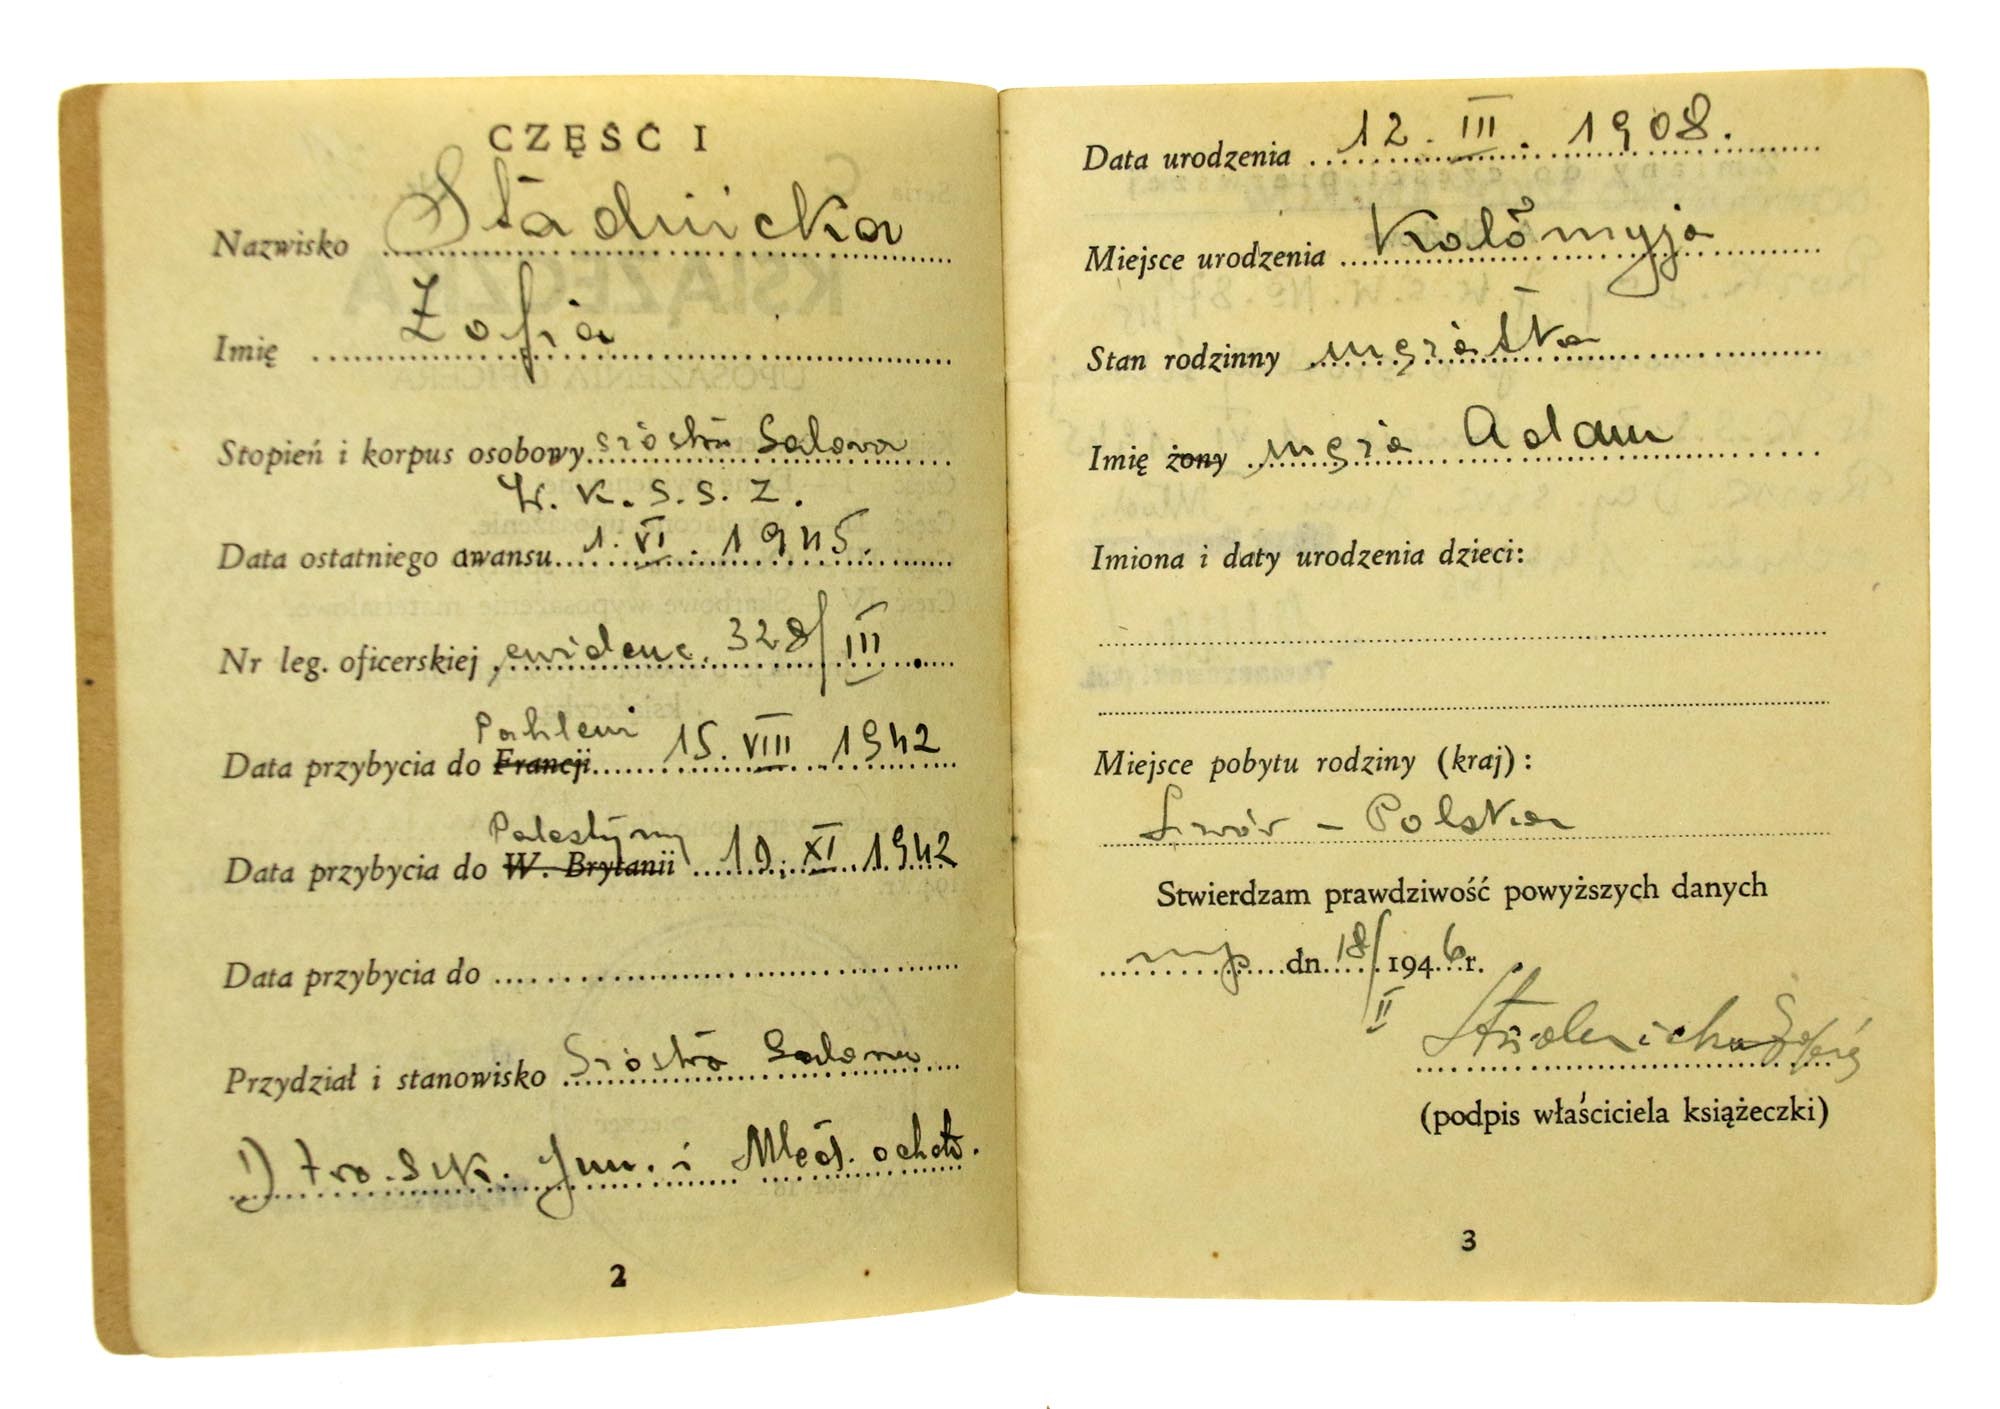 CZĘŚĆ I
Nazwisko Stadnicka
Imię Zofia
Stopień i korpus osobowy siostra Salowa
W. K. S. S. Z.
Data ostatniego awansu 1. VI. 1945.
Nr leg. oficerskiej ewidenc. 328/III.
Data przybycia do Francji Pahlevi 15. VIII 1942
Data przybycia do W. Brytanii Palestyny 19. XI. 1942
Data przybycia do
Przydział i stanowisko Siostra Salowa
1) Jun. i Młod. ochotn.
2
Data urodzenia 12. III. 1908.
Miejsce urodzenia Kołomyja
Stan rodzinny mężatka
Imię żony męża Adam
Imiona i daty urodzenia dzieci:
Miejsce pobytu rodziny (kraj):
Lwów - Polska
Stwierdzam prawdziwość powyższych danych
mp dn. 18/II 1946 r.
Stadnicka Zofia
(podpis właściciela książeczki)
3